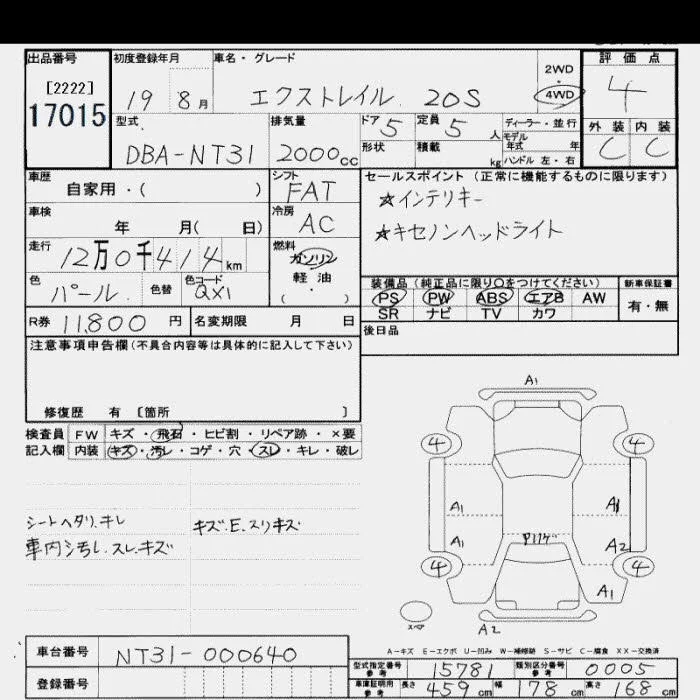 出品番号 初度登録年月 車名・グレード 2WD 評価点
[2222] 19 8月 エクストレイル 20S 4WD 4
17015 型式 排気量 ドア 5 定員 5人 ディーラー・並行 外装 内装
モデル年式 年 C C
DBA-NT31 2000cc 形状 積載 kg ハンドル 左・右
車歴 シフト セールスポイント (正常に機能するものに限ります)
自家用・( ) FAT ☆インテリキー
車検 冷房 ☆キセノンヘッドライト
年 月( 日) AC
走行 燃料
12万0千414km ガソリン
色 色替 色コード 軽・油 装備品 (純正品に限り○をつけてください) 新車保証書
パール QX1 ( ・ ) PS PW ABS エアB AW 有・無
R券 11,800円 名変期限 月 日 SR ナビ TV カワ
注意事項申告欄(不具合内容等は具体的に記入して下さい) 後日品
修復歴 有 〔箇所 〕
検査員 FW キズ・飛石・ヒビ割・リペア跡・×要
記入欄 内装 キズ・汚レ・コゲ・穴・スレ・キレ・破レ
シートヘタリ.キレ キズ.E.スリキズ
車内シ汚レ.スレ.キズ
A1
4 4
A1 A1
A1 A2
4 4
A1
スペア A2
A-キズ E-エクボ U-凹み W-補修跡 S-サビ C-腐食 XX-交換済
車台番号 NT31-000640
型式指定番号 参考 15781 類別区分番号 参考 0005
登録番号
車庫証明用 参考 長さ 459cm 幅 178cm 高さ 168cm